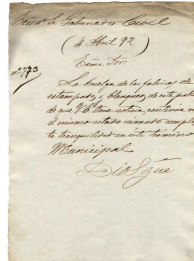 Exmo Sr Gobernador Civil
(4 Abril 92)
nº 173
Exmo Sor
La huelga de las fabricas de
estampados y blanqueo de esta
de que V.E. tiene noticia, continua en
el mismo estado reinando
ta tranquilidad en este termino
Municipal
Dios gue